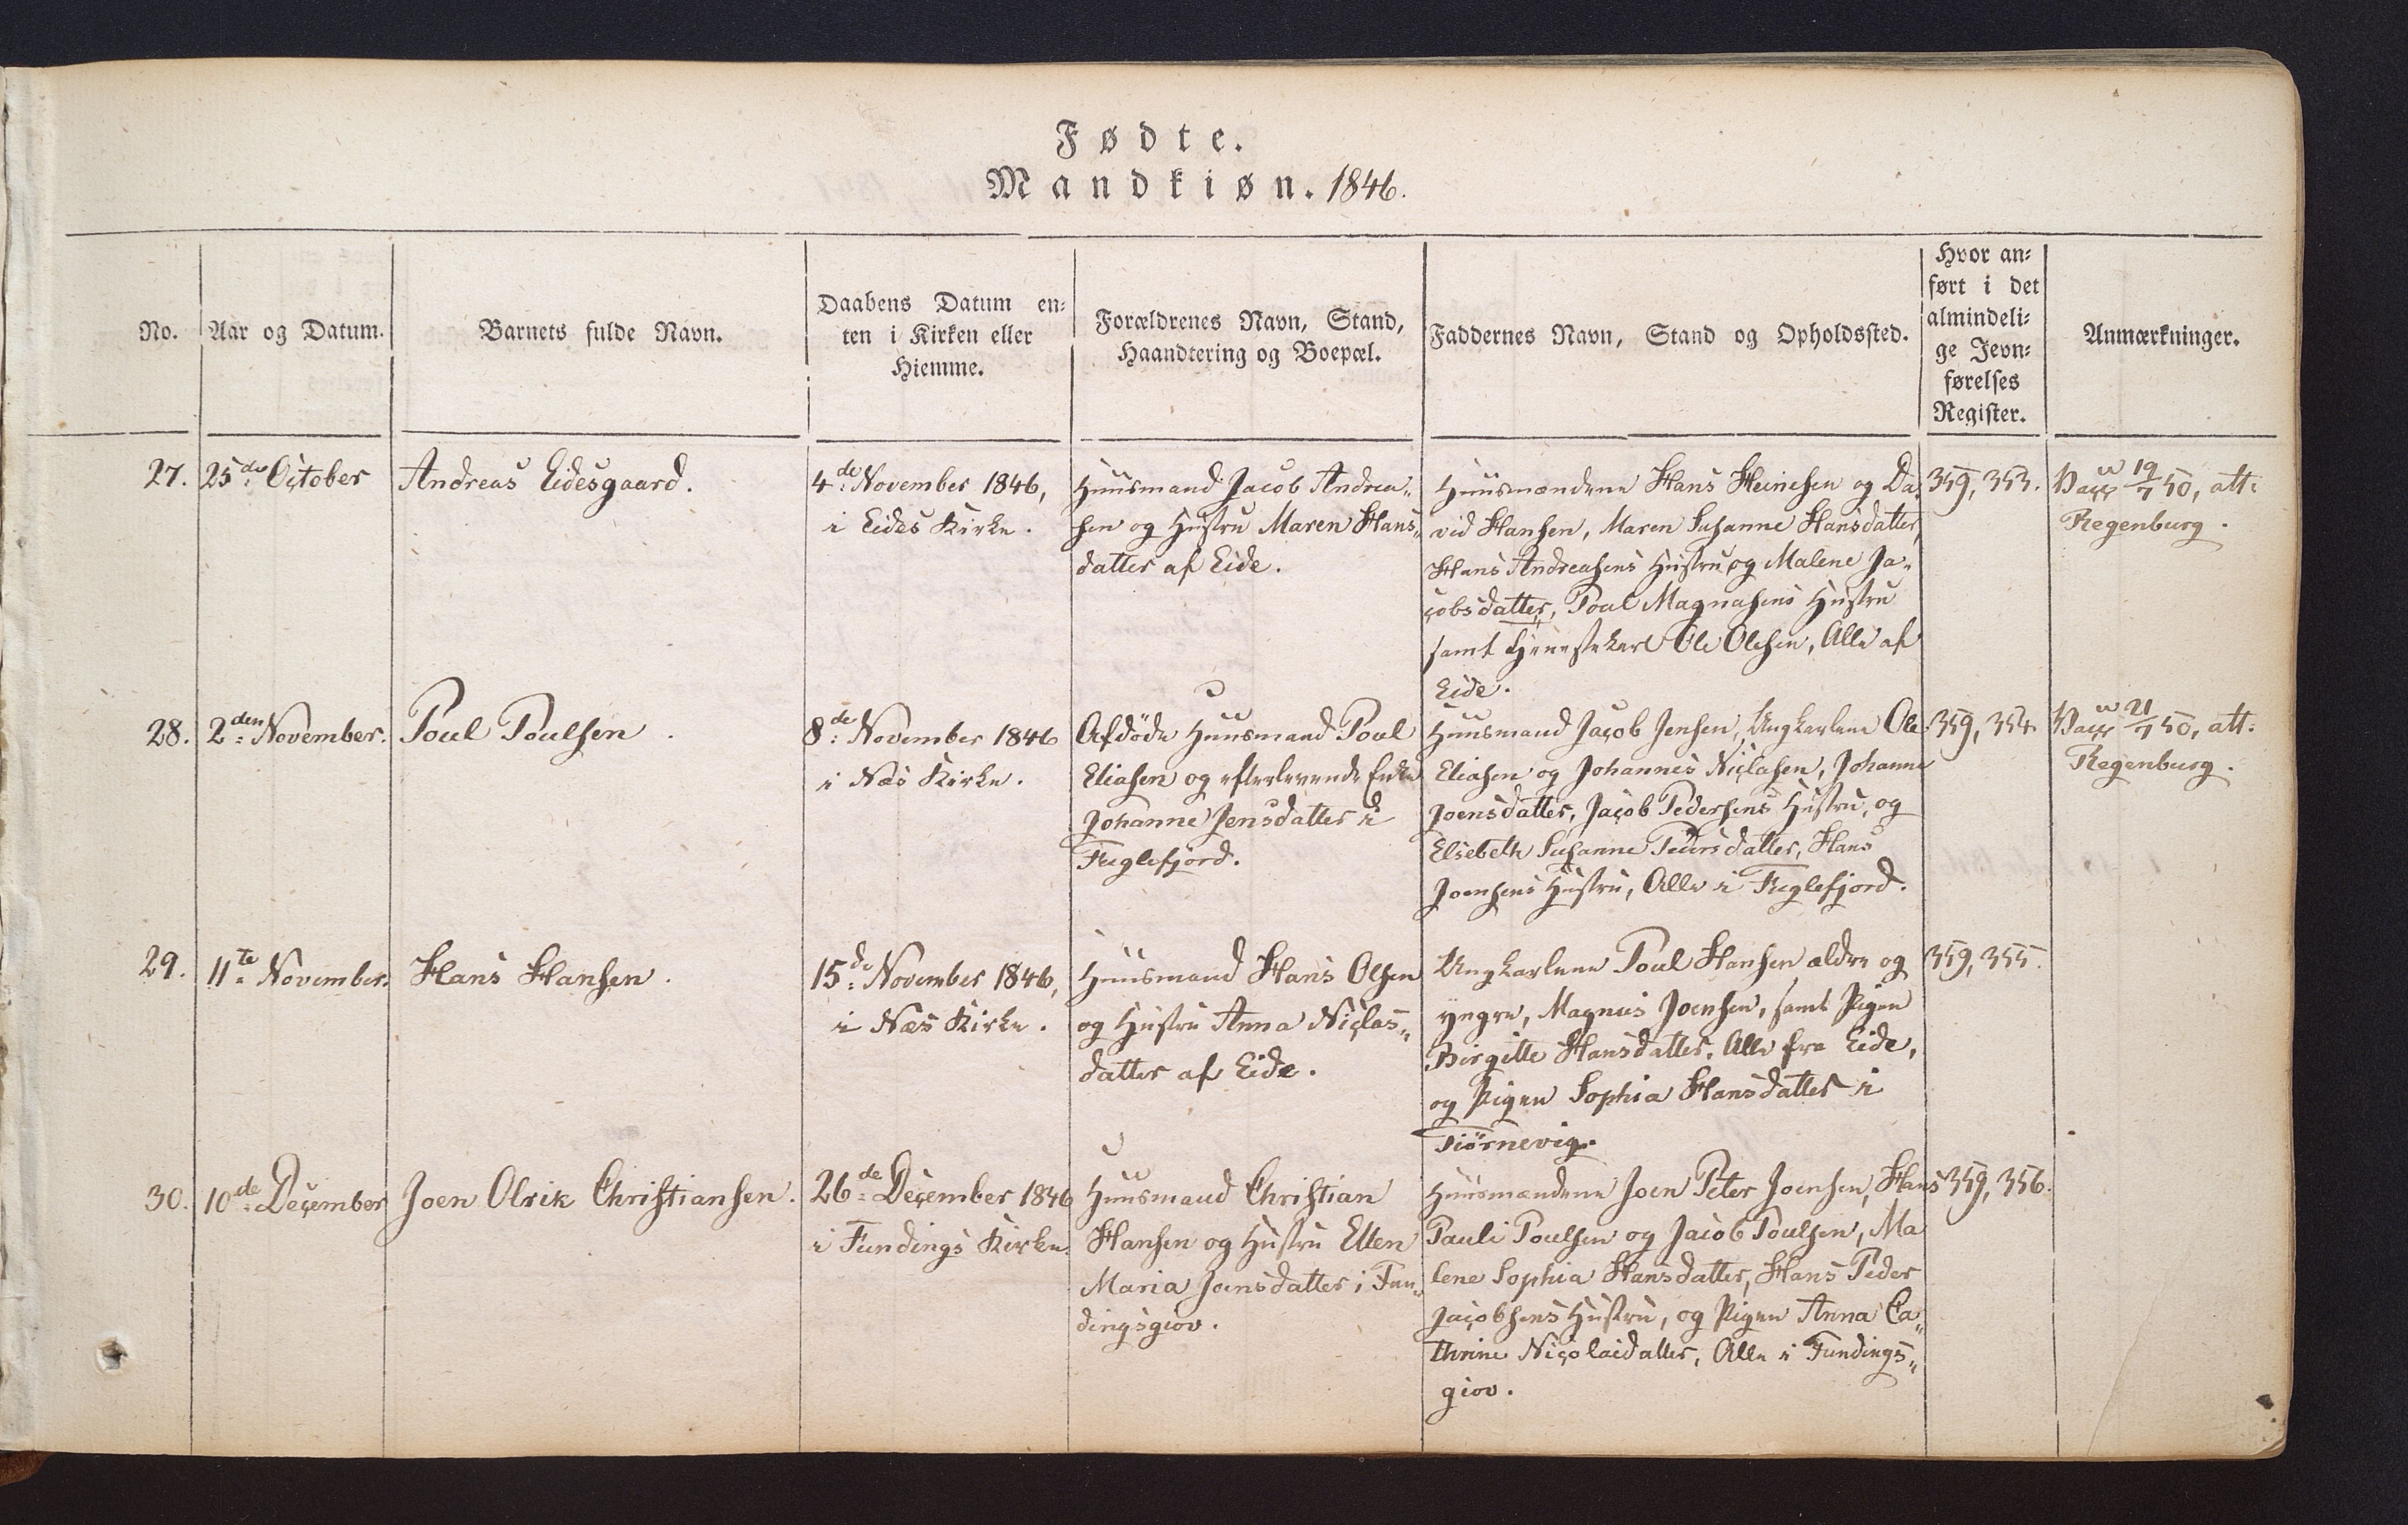 Fødte.
Mandkiøn. 1846.
No.
Aar og Datum.
Barnets fulde Navn.
Daabens Datum en-
ten i Kirken eller
Hiemme.
Forældrenes Navn, Stand,
Haandtering og Boepæl.
Faddernes Navn, Stand og Opholdssted.
Hvor an-
ført i det
almindeli-
ge Jevn-
førelses
Register.
Anmærkninger.
27.
25de October
Andreas Eidesgaard.
4de November 1846,
i Eides Kirke.
Huusmand Jacob Andrea-
sen og Hustru Maren Hans-
datter af Eide.
Huusmændene Hans Heinesen og Da-
vid Hansen, Maren Susanne Hansdatter,
Hans Andreasens Hustru og Malene Ja-
cobsdatter, Poul Magnasens Hustru
samt Tjenestekarl Ole Olesen, Alle af
Eide.
359, 353.
Vacc 19/7 50, att:
Regenburg.
28.
2den November.
Poul Poulsen.
8de November 1846
i Næs Kirke.
Afdøde Huusmand Poul
Eliasen og efterlevende Enke
Johanne Jensdatter i
Fuglefjord.
Huusmand Jacob Jensen, Ungkarlene Ole
Eliasen og Johannes Niclasen, Johanne
Joensdatter, Jacob Pedersens Hustru, og
Elsebeth Susanne Poulsdatter, Hans
Joensens Hustru, Alle i Fuglefjord.
359, 354.
Vacc 21/7 50, att:
Regenburg.
29.
11te November.
Hans Hansen.
15de November 1846,
i Næs Kirke.
Huusmand Hans Olsen
og Hustru Anna Niclas-
datter af Eide.
Ungkarlene Poul Hansen ældre og
yngre, Magnus Joensen, samt Pigen
Birgitte Hansdatter, Alle fra Eide,
og Pigen Sophia Hansdatter i
Tiörnevig.
359, 355.
30.
10de December
Joen Olrik Christiansen.
26de December 1846
i Fundings Kirke.
Huusmand Christian
Hansen og Hustru Ellen
Maria Joensdatter i Fun-
dingsgiov.
Huusmændene Joen Peter Joensen, Hans
Pauli Poulsen og Jacob Poulsen, Ma
lene Sophia Hansdatter, Hans Peder
Jacobsens Hustru, og Pigen Anna Ca-
thrine Nicolaidatter, Alle i Fundings-
giov.
359, 356.